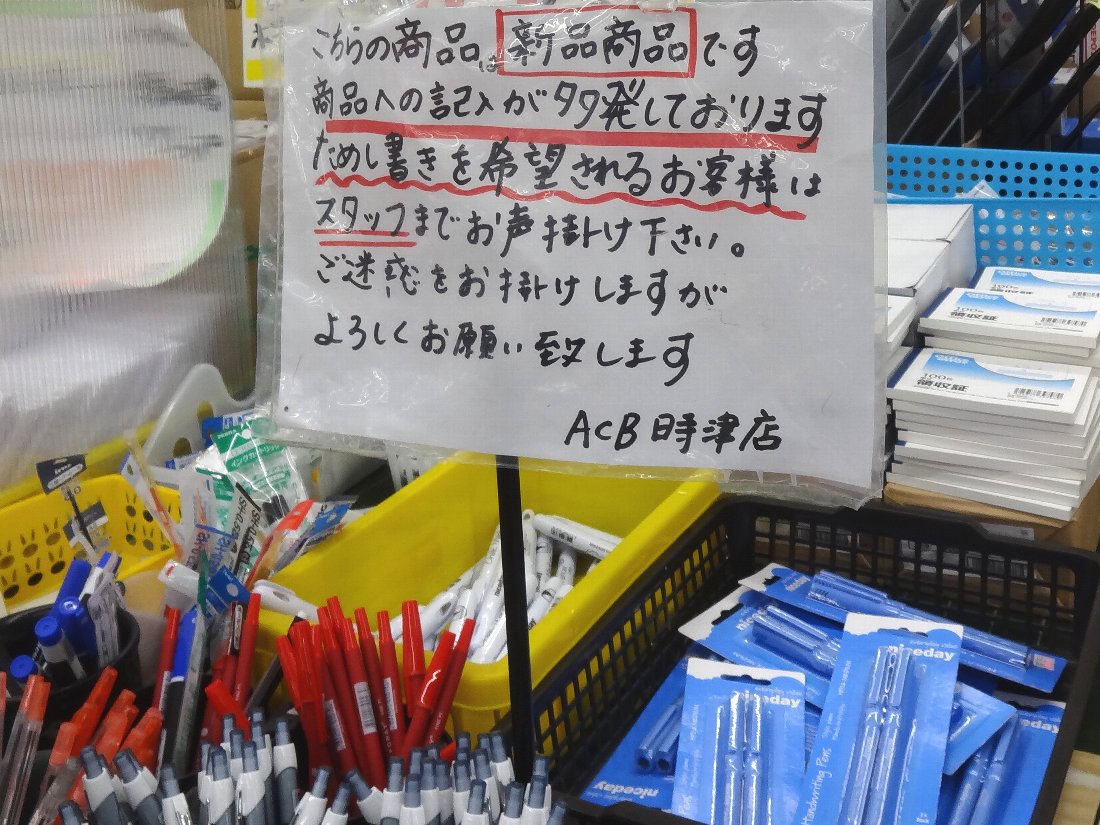 こちらの商品は新品商品です
商品への記入が多発しております
ためし書きを希望されるお客様は
スタッフまでお声掛け下さい。
ご迷惑をお掛けしますが
よろしくお願い致します
ACB時津店
100枚
領収証
100枚
領収証
niceday
niceday
niceday
Handwriting Pens